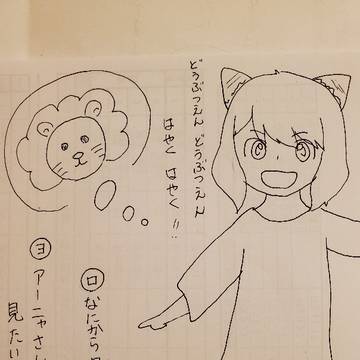 どうぶつえん どうぶつえん
はやく はやく!!
ロ なにから
ヨ アーニャさん
見たい